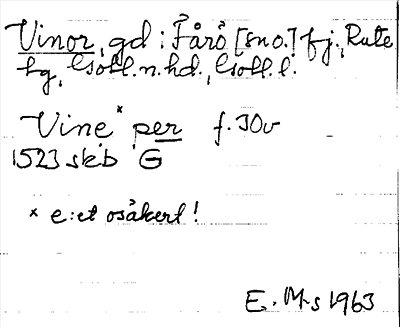 Vinor, gd i Fårö [sno.] fj., Rute
hg, Gotl. n. hd., Gotl. l.
Vine* per f. 30v
1523 skb G
* e:et osäkert!
E. M-s 1963